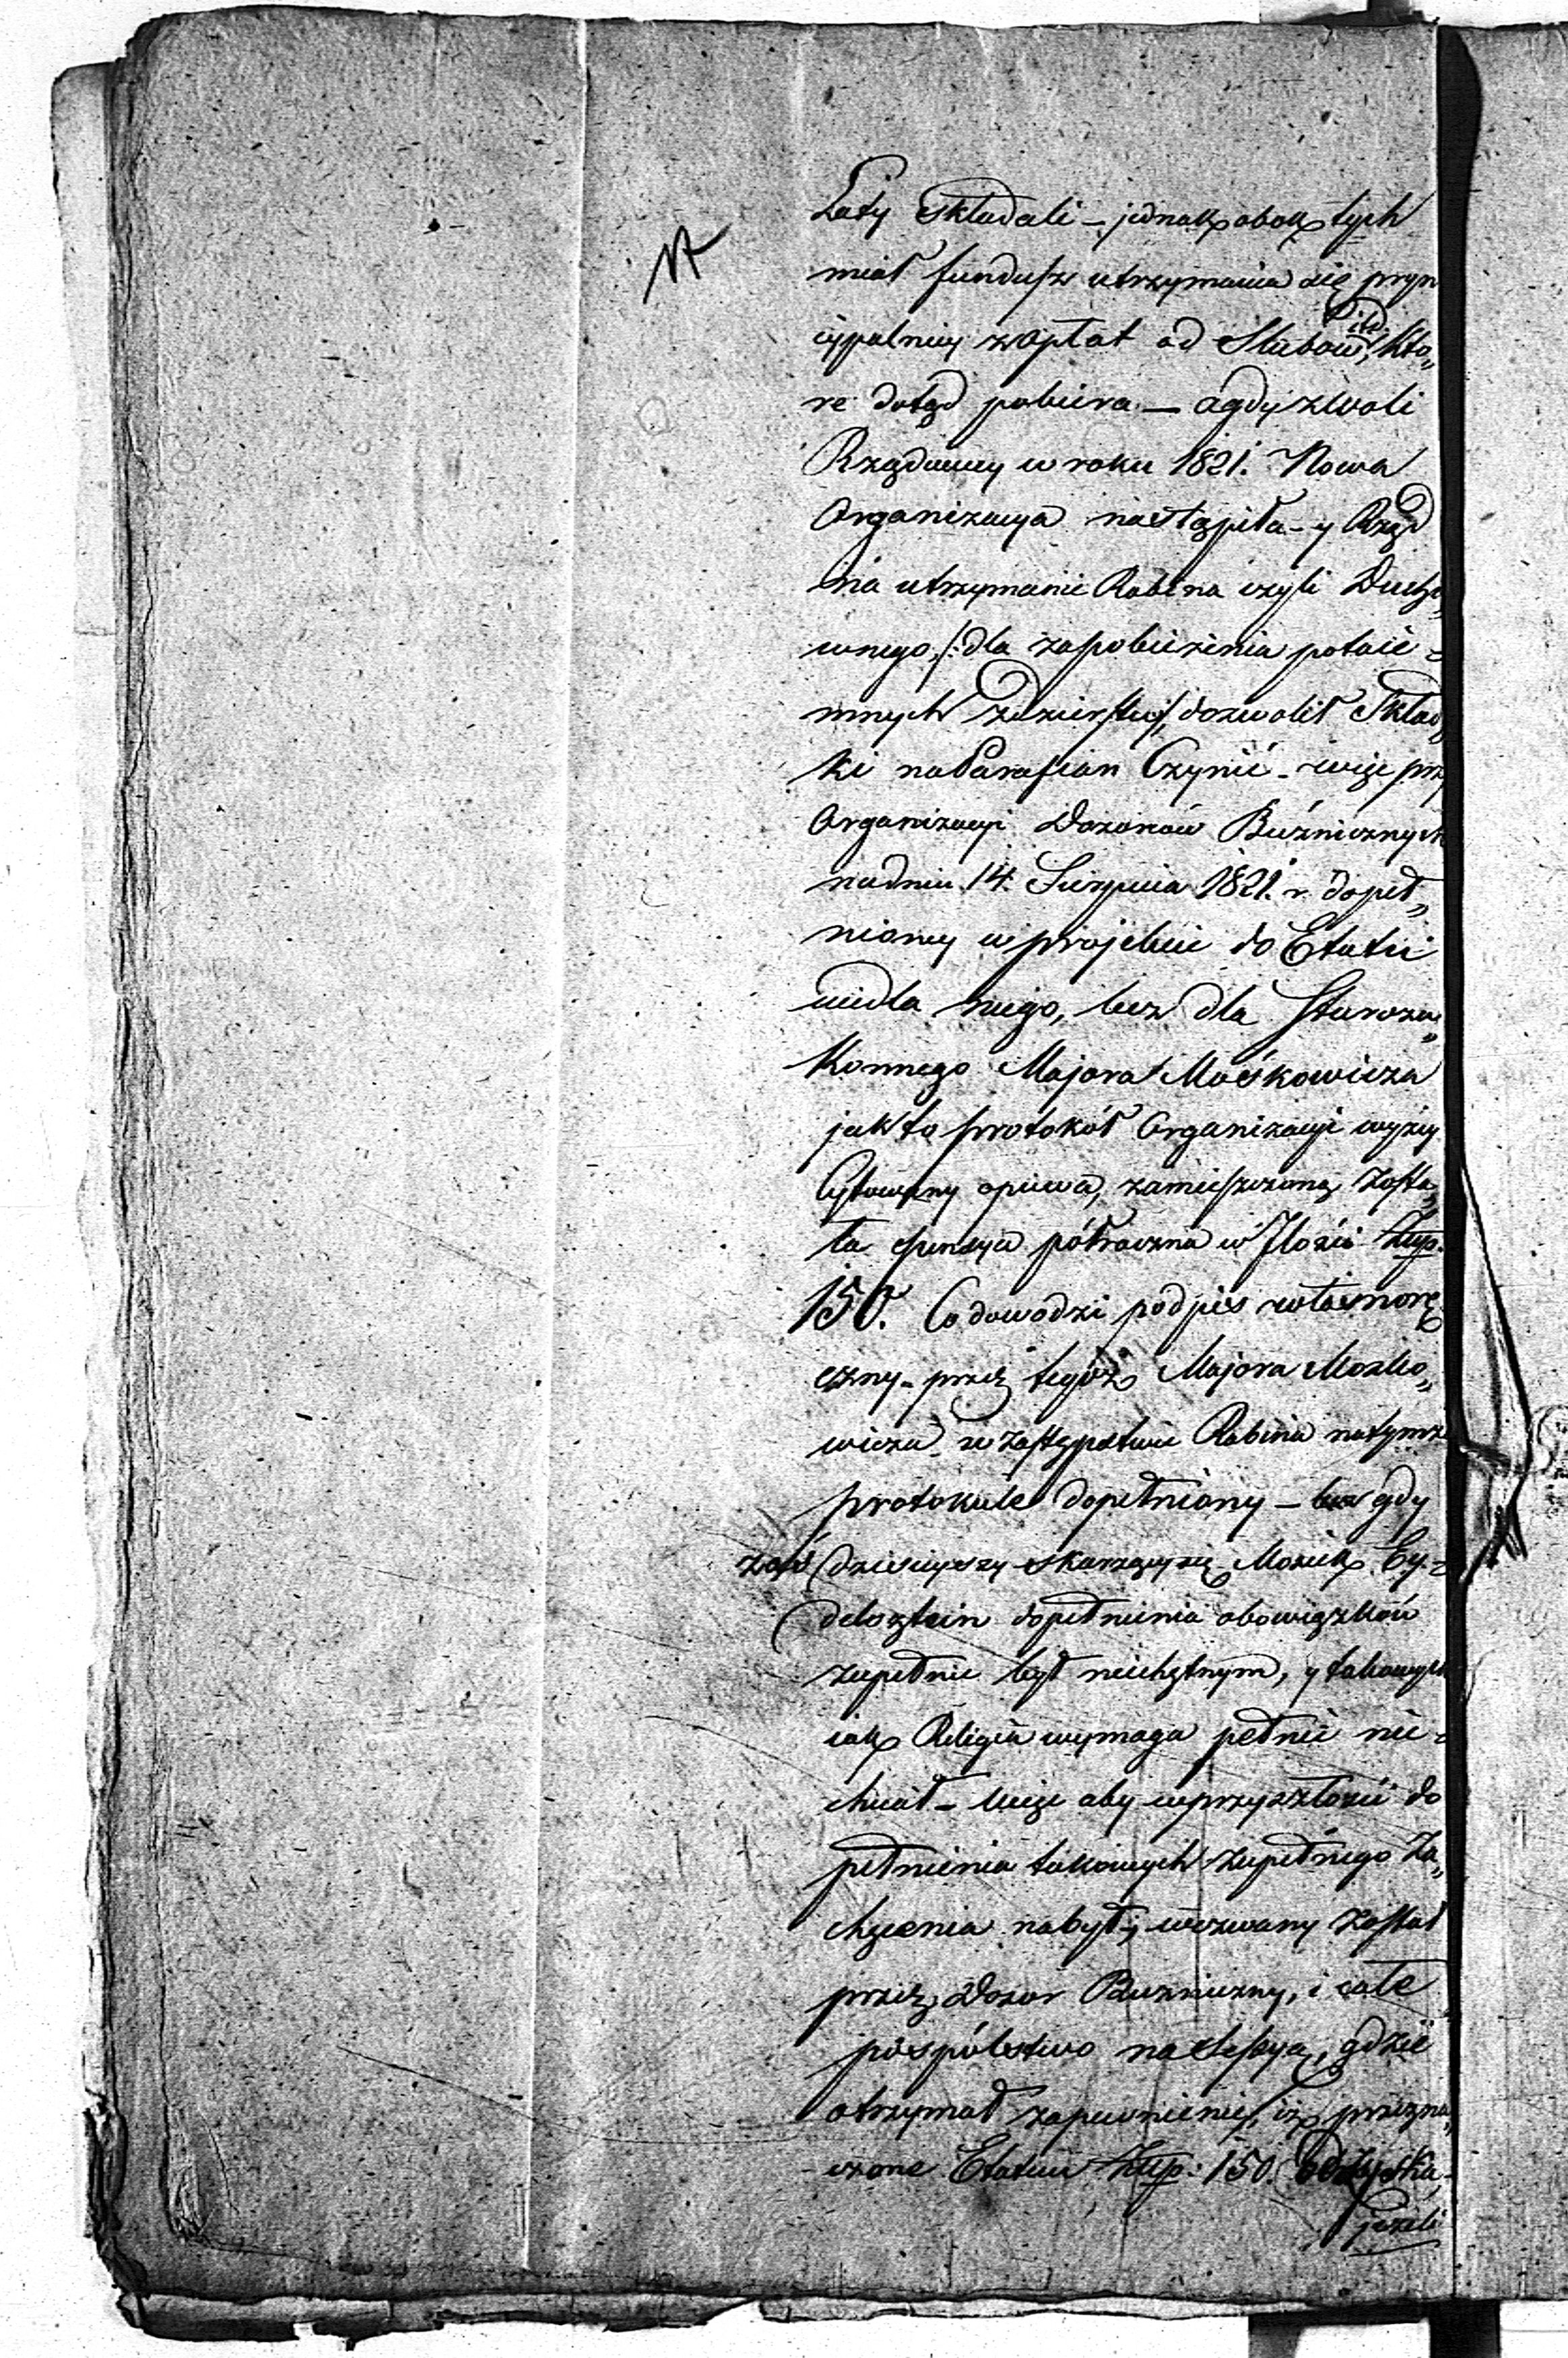 Laty składali – jednak obok tych
miał fundusz utrzymania się pryn
cypalniey z opłat od Slubow itd., kto„
re dotąd pobiera – a gdy z Woli
Rządowey w roku 1821. Nowa
Organizacya nastąpiła – y Rząd
na utrzymanie Rabina czyli Ducho„
wnego, /: dla zapobieżenia potaie=
mnych zdzierstw :/ dozwolił Skład„
ki na Parafian Czynić – więc przy
Organizacyi Dozorów Bużnicznych
na dniu 14. Sierpnia 1821. r. dopeł„
nioney w projekcie do Etatu
nie dla niego, lecz dla Staroza„
konnego Majora Mośkowicza
jak to protokół Organizacyi wyżey
Cytowany opiewa, zamieszczoną zosta„
ła pensya półroczna w Ilości Złłp.
150. Co dowodzi podpis własnorę„
czny – przez tegoż Majora Moszko„
wicza w zastępstwie Rabina na tymże
protokule dopełniony – lecz gdy
zaś dzisieyszy skarzący się Mosiek Ey=
delsztein dopełnienia obowiązków
zupełnie był niechętnym, y takowych
iak Religia wymaga pełnić nie=
chciał – więc aby w przyszłości do
pełnienia takowych zupełnego Za„
chęcenia nabył, wezwany został
przez Dozor Buzniczny, i całe
pospólstwo na Sessyą, gdzie
otrzymał zapewnienie, iż przezna„
czone Etatem Złłp: 150. odzyska –
jeżeli